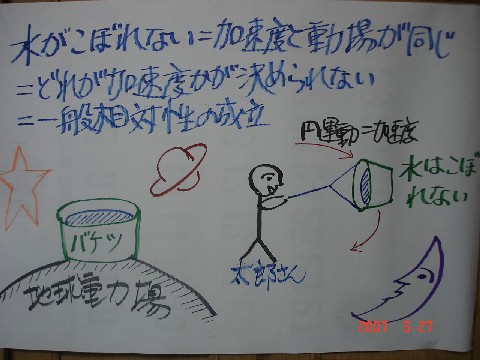 水がこぼれない=加速度と動場が同じ
=どれが加速度かが決められない
=一般相対性の成立
円運動=加速度
水はこぼ
れない
バケツ
太郎さん
地球重力場
2007 5.27